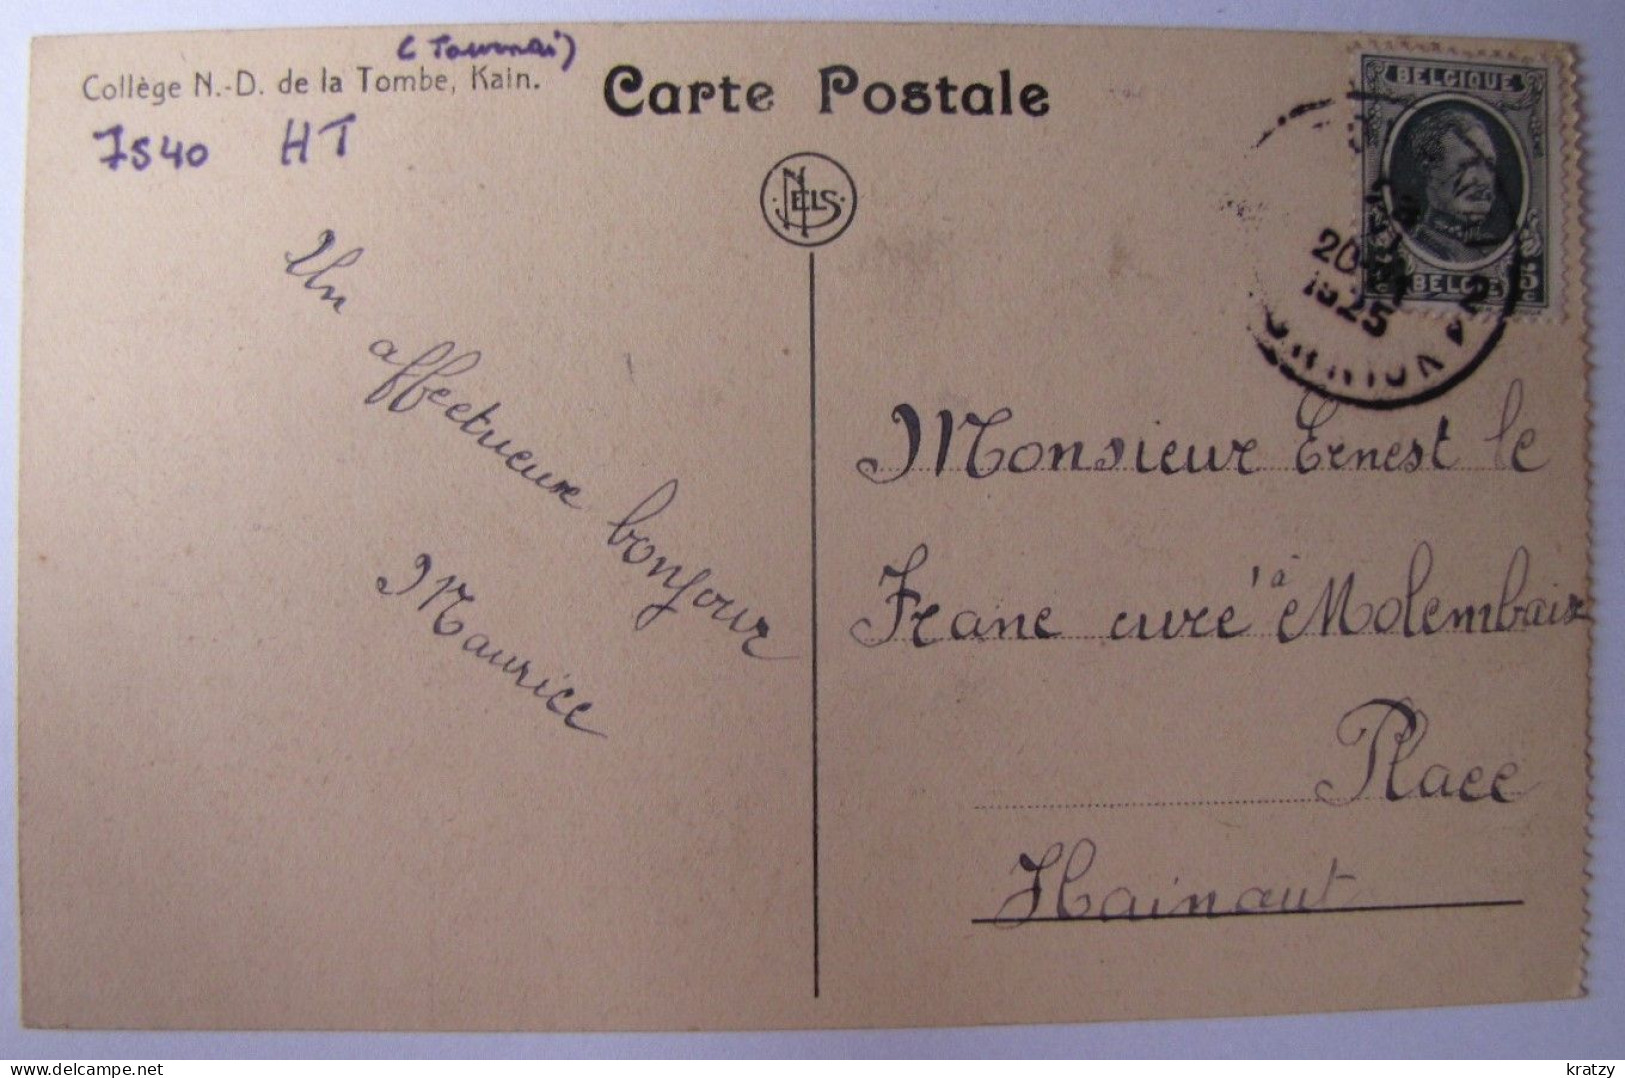 (Tournai)
Collège N.-D. de la Tombe, Kain.
Carte Postale
7540 HT
NELS
BELGIQUE
BELGIË
5 c
20
1925
Un
affectueux bonjour
Maurice
Monsieur Ernest le
Franc curé à Molembaix
Place
Hainaut
kratzy